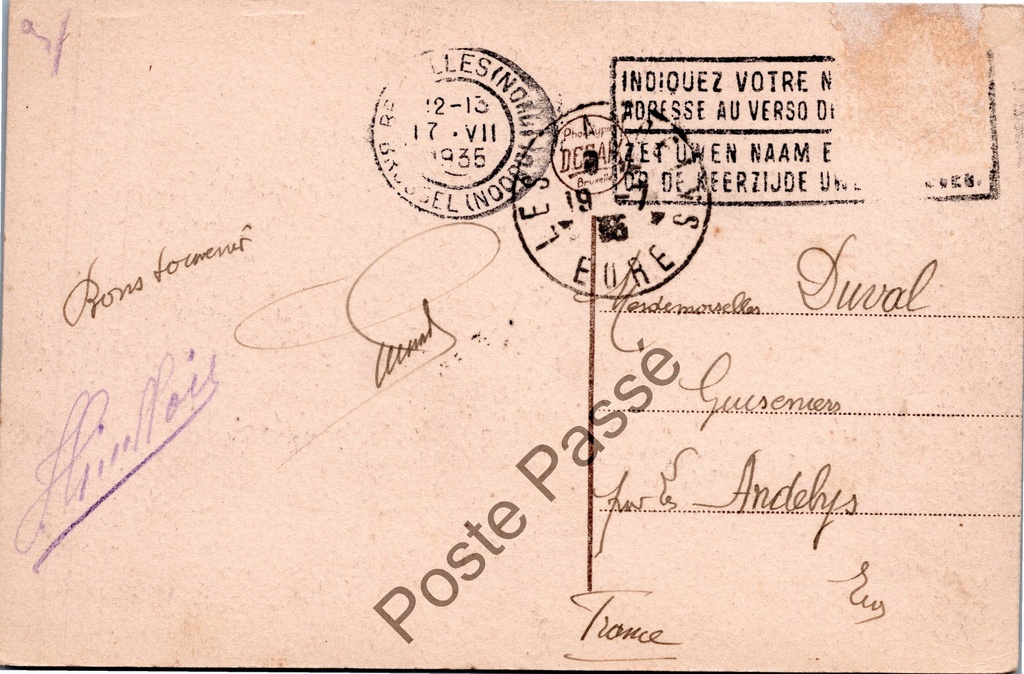 BRUXELLES (NORD)
12-13
17 · VII
1935
BRUSSEL (NOORD)
INDIQUEZ VOTRE N
ADRESSE AU VERSO DE
ZET UWEN NAAM E
OP DE KEERZIJDE UW
LES ANDELYS
19 -7
35
EURE
Bons souvenir
Mesdemoiselles Duval
Guiseniers
par les Andelys
Eure
France
Poste Passé